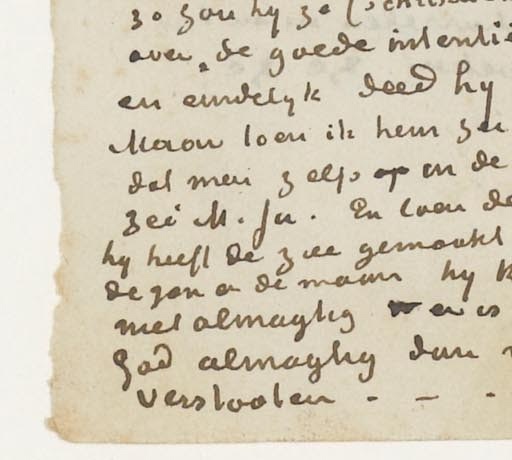 zo zou hy ze
over de goede intentie
en eindelyk deed hy
Maar toen ik hem zei
dat men zelfs op in de
zei M. ja. En toen de
hy heeft de zee gemaakt
de zon en de maan hy k
niet almagtig en is
God almagtig dan
verstooten - - -